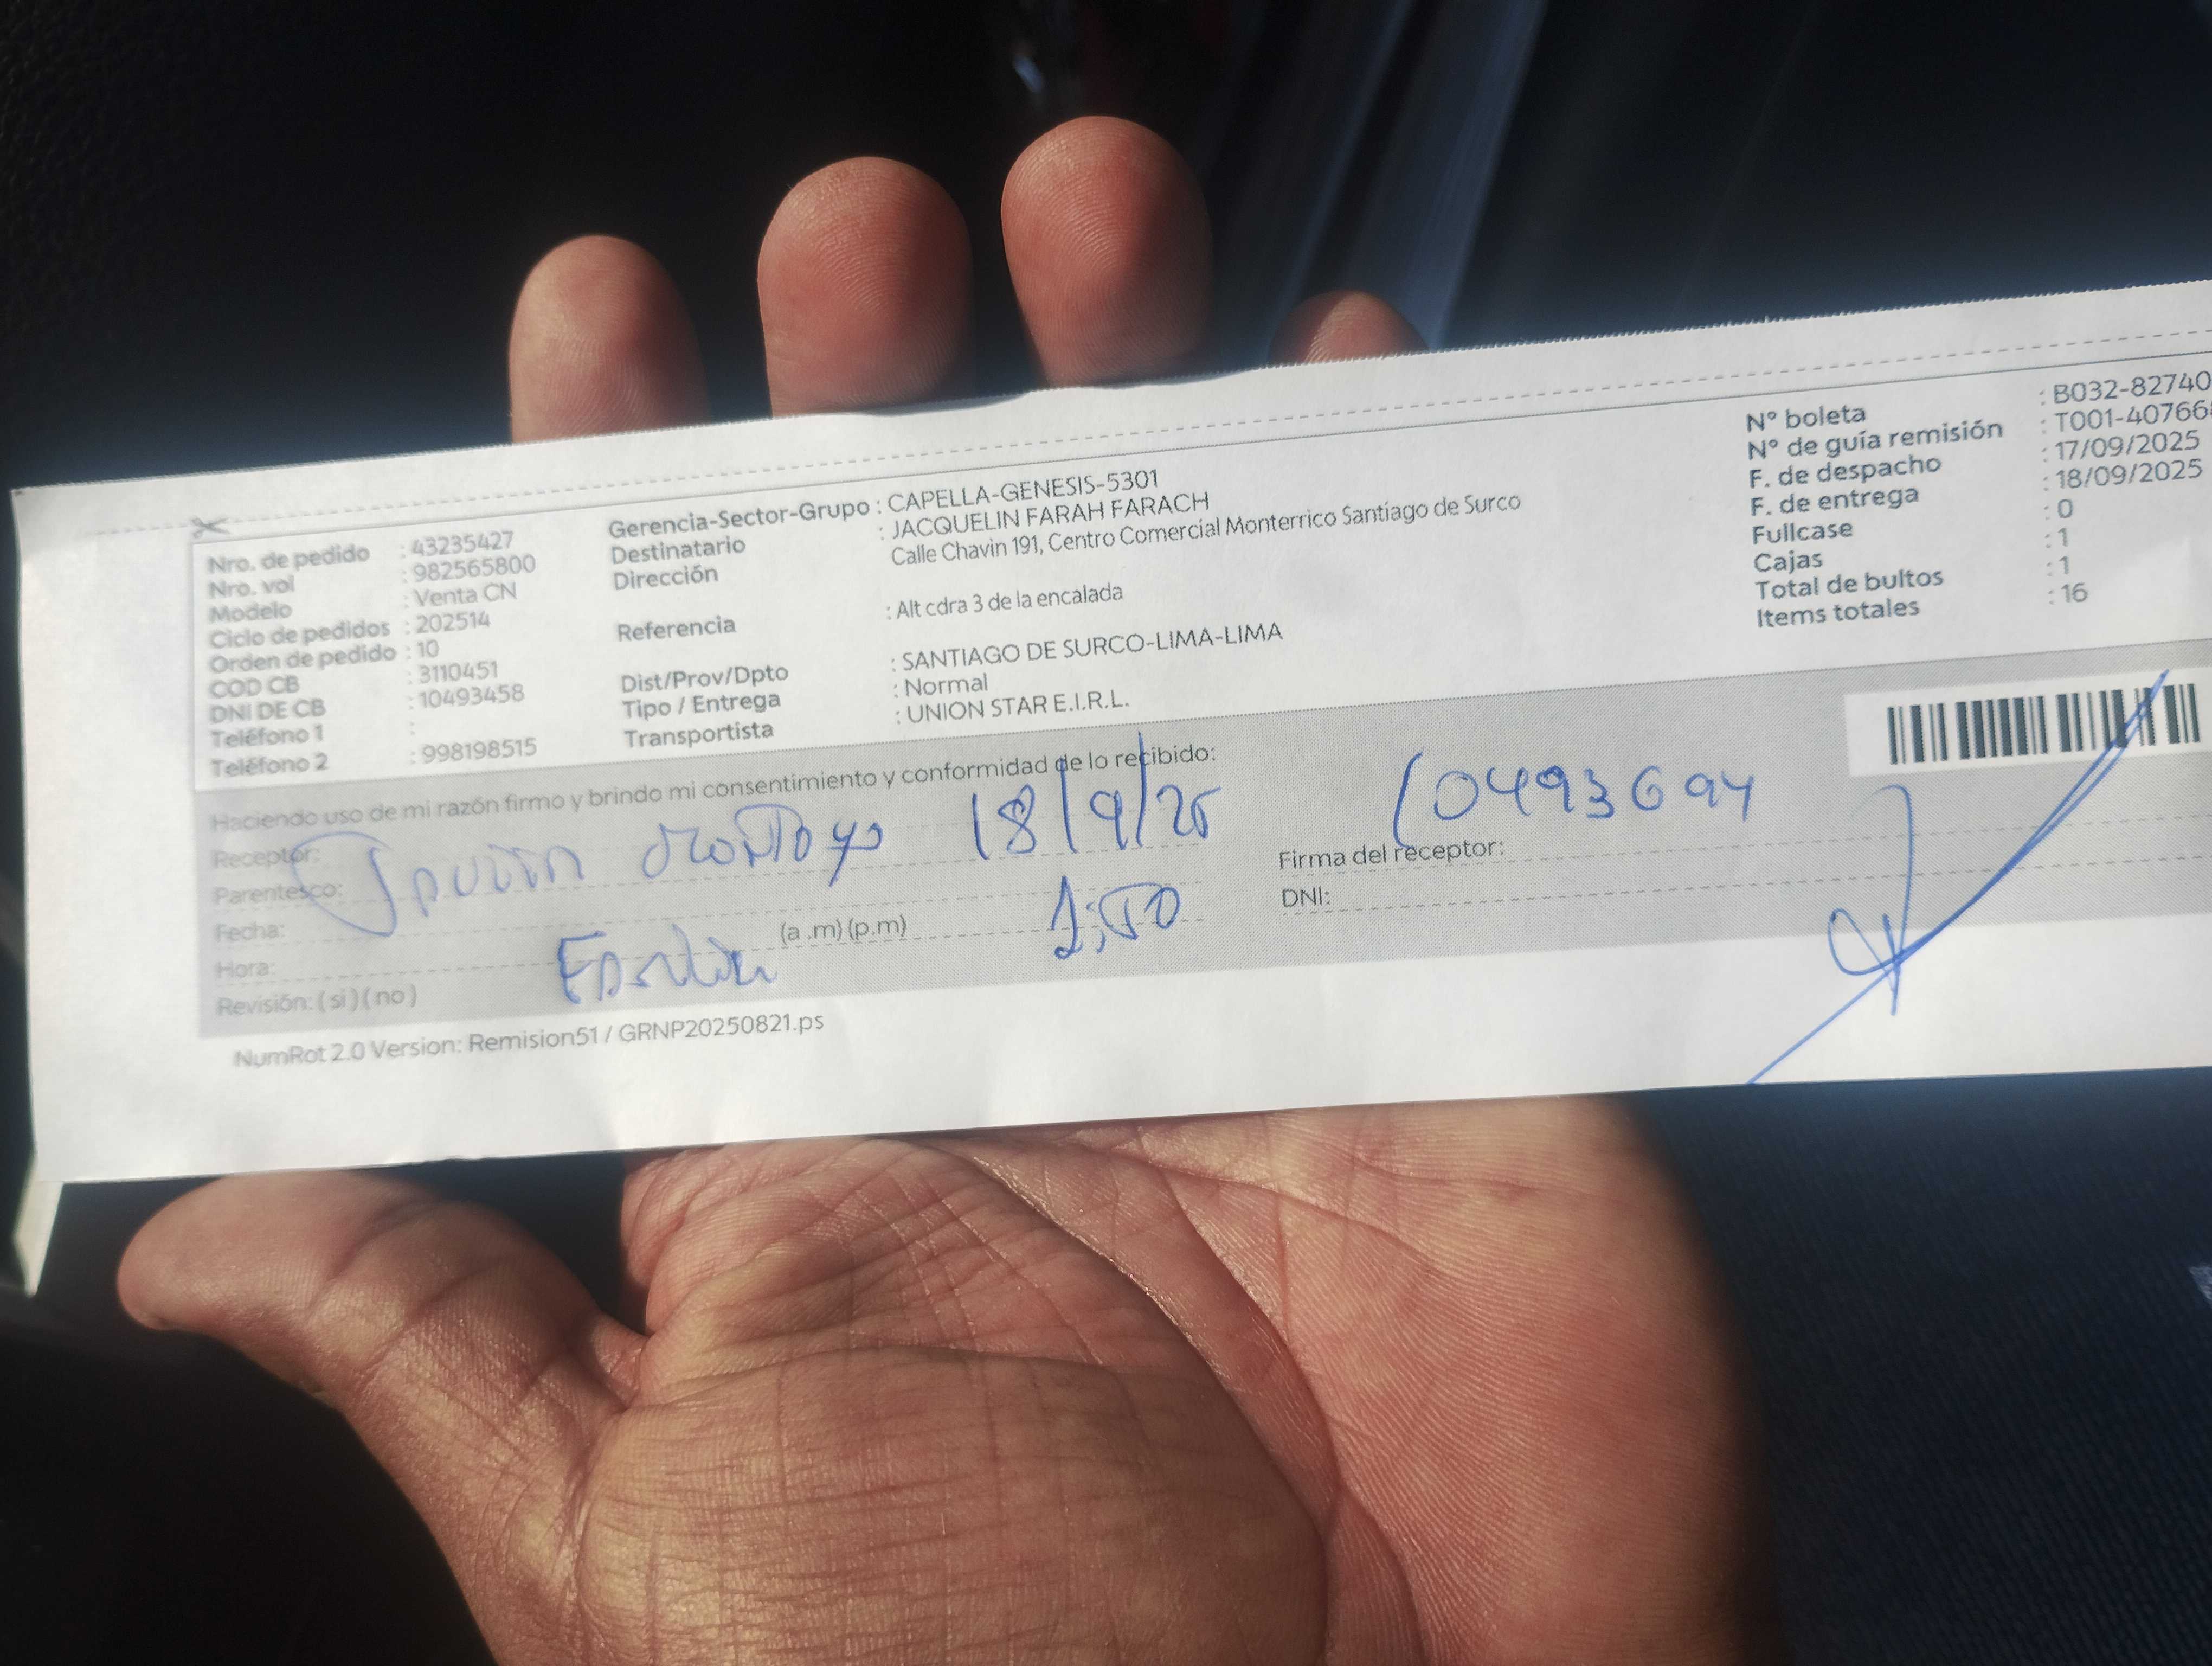 Nro. de pedido : 43235427
Nro. vol : 982565800
Modelo : Venta CN
Ciclo de pedidos : 202514
Orden de pedido : 10
COD CB : 3110451
DNI DE CB : 10493458
Teléfono 1 :
Teléfono 2 : 998198515
Gerencia-Sector-Grupo : CAPELLA-GENESIS-5301
Destinatario : JACQUELIN FARAH FARACH
Dirección Calle Chavin 191, Centro Comercial Monterrico Santiago de Surco
Referencia : Alt cdra 3 de la encalada
Dist/Prov/Dpto : SANTIAGO DE SURCO-LIMA-LIMA
Tipo / Entrega : Normal
Transportista : UNION STAR E.I.R.L.
N° boleta : B032-82740
N° de guía remisión : T001-40766
F. de despacho : 17/09/2025
F. de entrega : 18/09/2025
Fullcase : 0
Cajas : 1
Total de bultos : 1
Items totales : 16
Haciendo uso de mi razón firmo y brindo mi consentimiento y conformidad de lo recibido:
Receptor: 18/9/25
Parentesco:
Fecha:
Hora: (a.m) (p.m) 1:50
Revisión: (si) (no)
10493694
Firma del receptor:
DNI:
NumRot 2.0 Version: Remision51 / GRNP20250821.ps